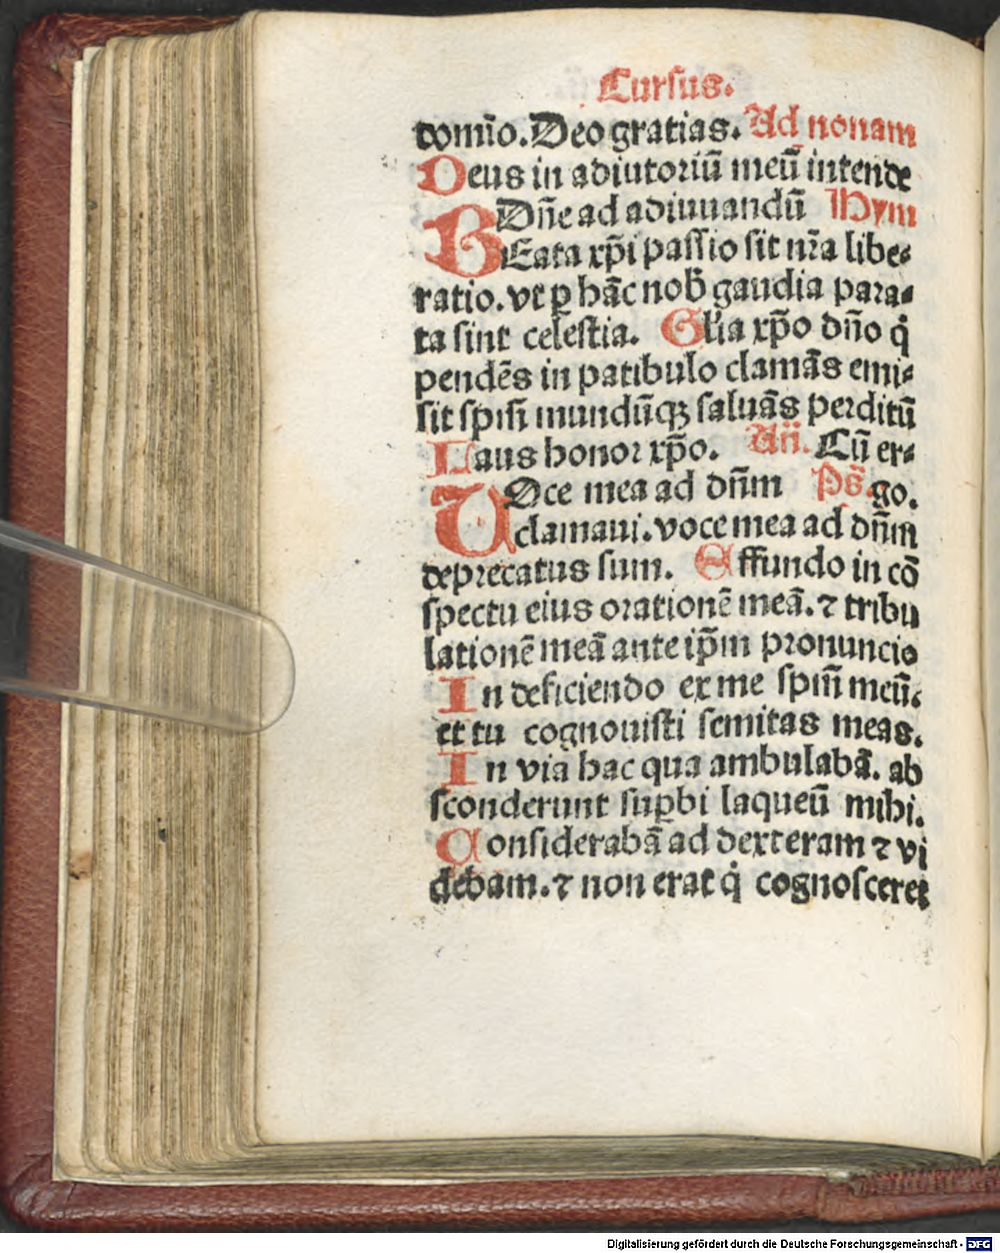 Cursus.
domīo. Deo gratias. Ad nonam
Deus in adiutoriū meū intende
Dn̄e ad adiuuandū Hym
BEata xp̄i passio sit nr̄a libe-
ratio. vt ꝑ hāc nob̄ gaudia para-
ta sint celestia. Gl̄ia xp̄o dn̄o q̇
pendēs in patibulo clamās emi-
sit spisi mundūqꝫ saluās perditū
Laus honor xp̄o. An̄. Cū er-
VOce mea ad dn̄m Ps̄. go.
clamaui. voce mea ad dn̄m
deprecatus sum. Effundo in cō
spectu eius orationē meā. ⁊ tribu
lationē meā ante ip̄m pronuncio
In deficiendo ex me spm̄ meū.
et tu cognouisti semitas meas.
In via hac qua ambulabā. ab
sconderunt suꝑbi laqueū mihi.
Considerabā ad dexteram ⁊ vi
debam. ⁊ non erat q̇ cognosceret
Digitalisierung gefördert durch die Deutsche Forschungsgemeinschaft - DFG